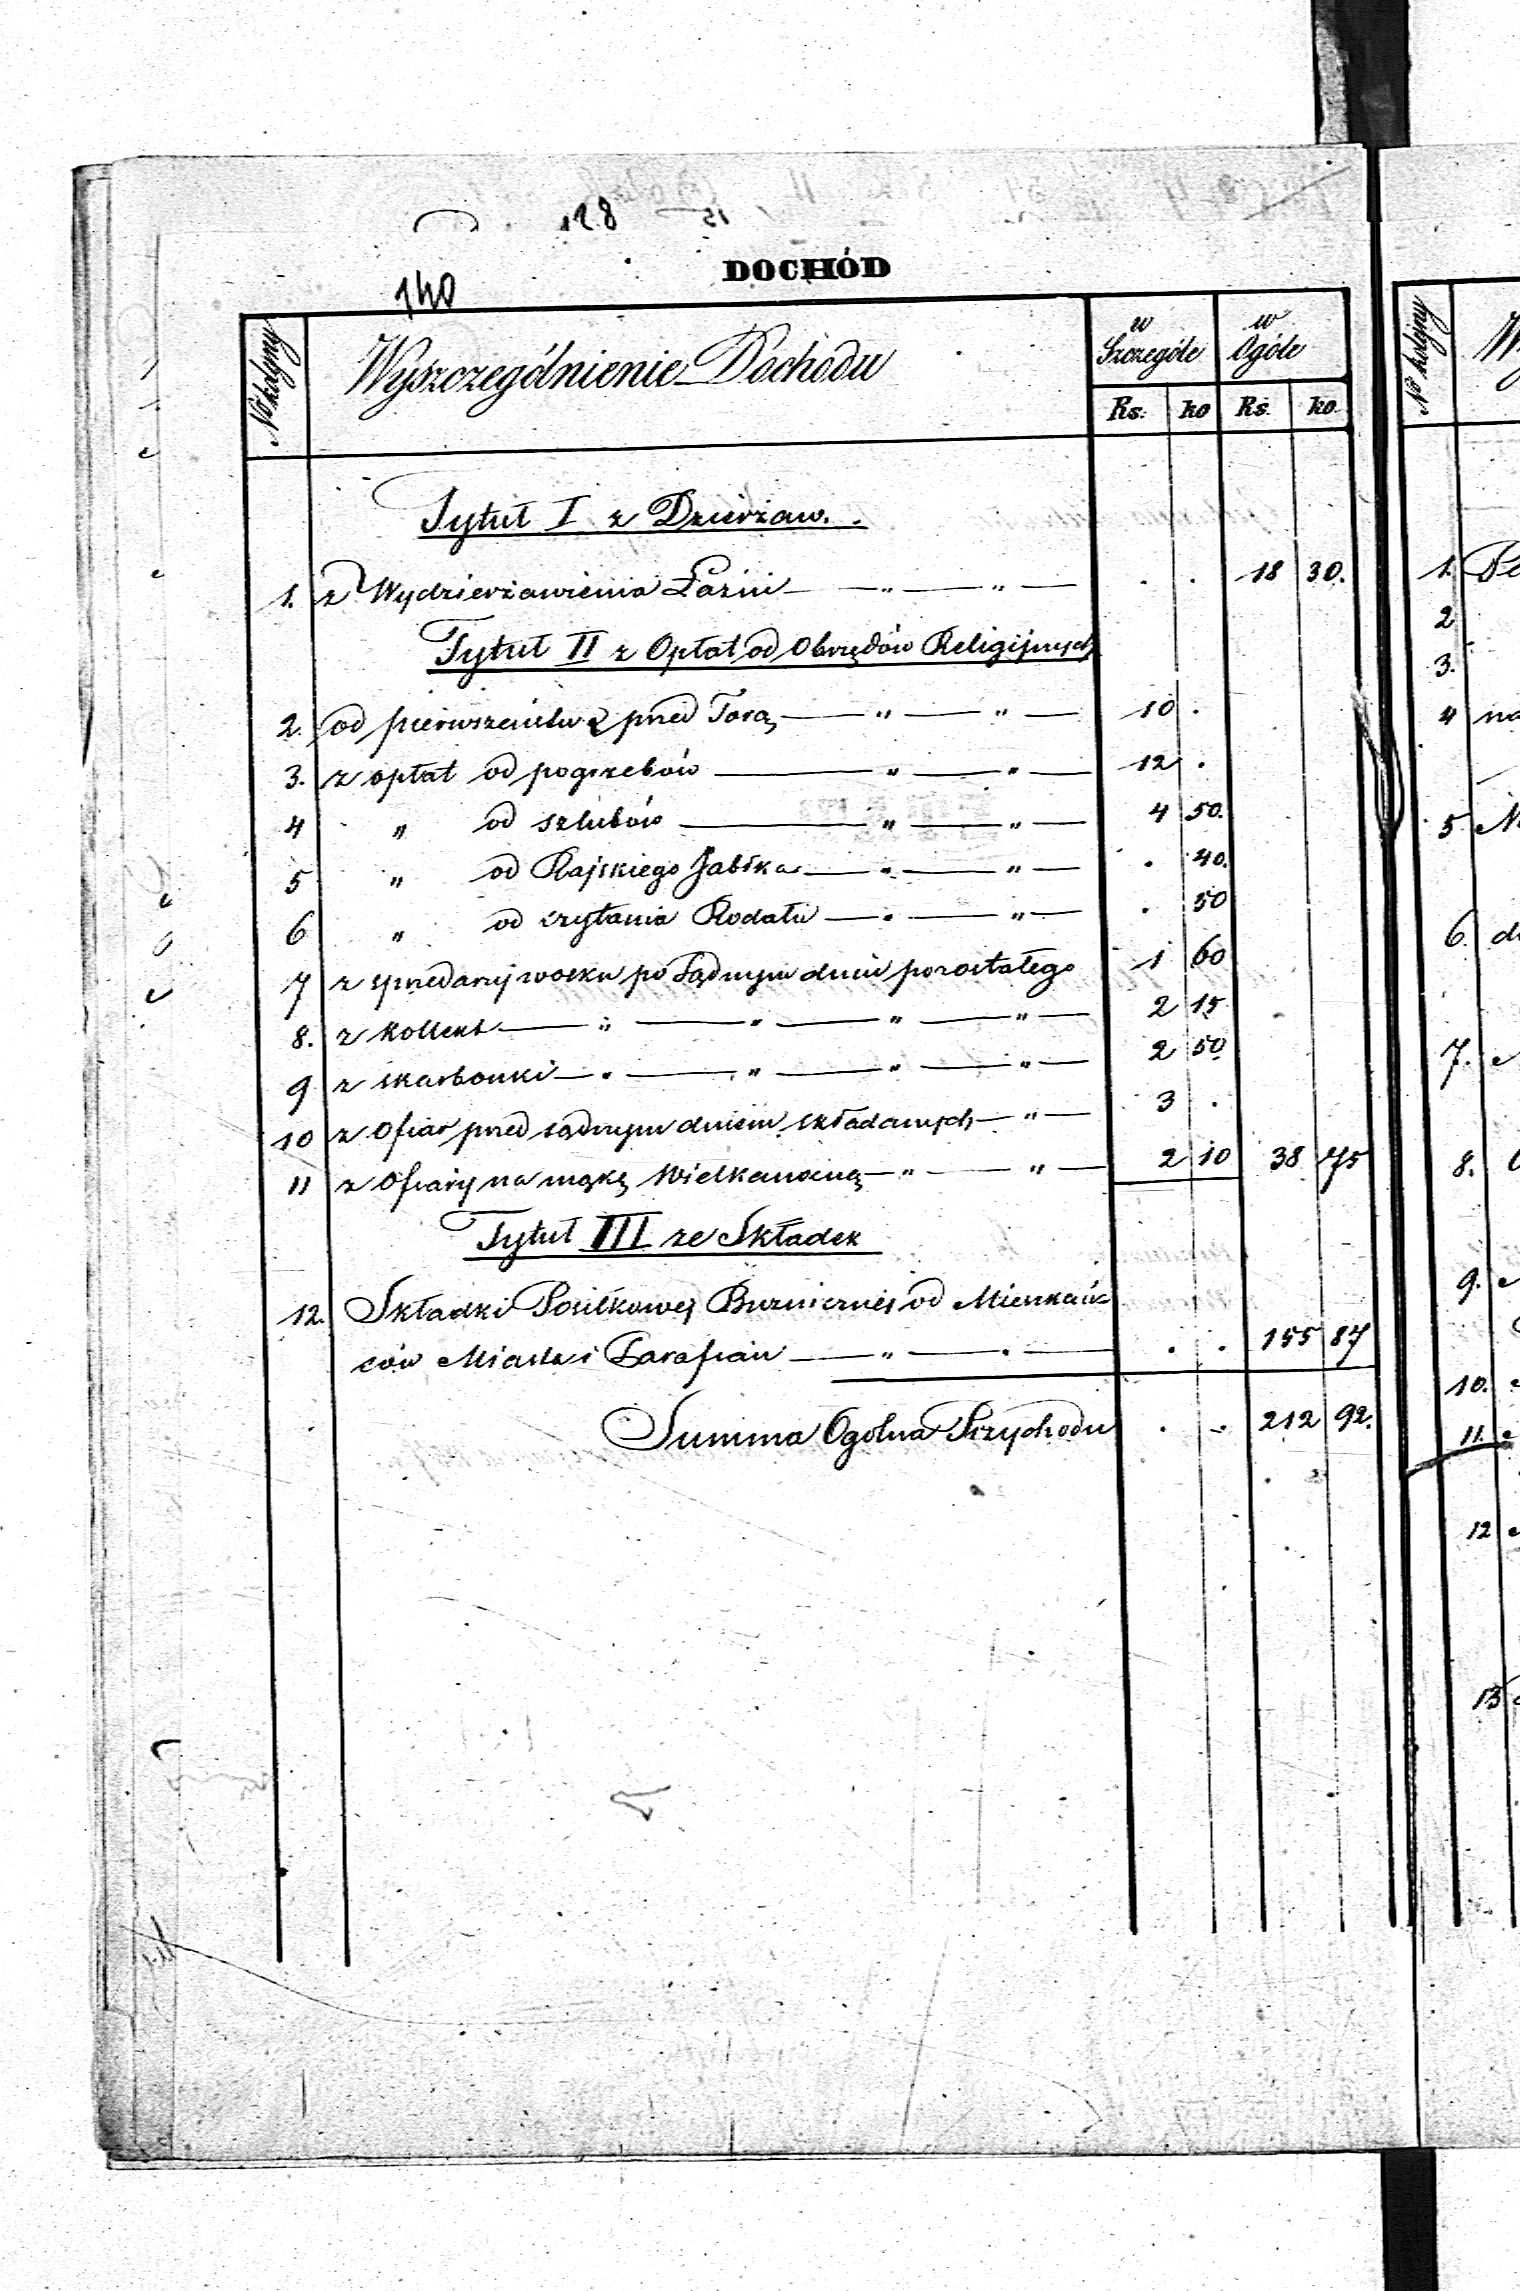 128
DOCHÓD
140
No kolejny Wyszczególnienie Dochodu w Szczególe w Ogóle
Rs. ko Rs. ko.
Tytuł I z Dzierżaw.
1. z Wydzierżawienia Łaźni — " — " — . . 18 30.
Tytuł II z Opłat od Obrzędów Religijnych
2. od pierwszeństw przed Torą — " — " — 10 .
3. z opłat od pogrzebów — " — " — 12 .
4 " od szlubów — " — " — 4 50.
5 " od Rajskiego Jabłka — " — " — . 40.
6 " od czytania Rodału — " — " — . 50
7 z sprzedarzy wosku po Sądnym dniu pozostałego 1 60
8. z Kollekt — " — " — " — " — 2 15
9 z skarbonki — " — " — " — " — 2 50
10 z Ofiar przed sądnym dniem składanych — " — 3 .
11 z Ofiary na mąkę Wielkanocną — " — " — 2 10 38 75
Tytuł III ze Składek
12. Składki Posiłkowej Bużnicznej od Mieszkań-
ców Miasta i Parafian — " — " — . . 155 87
Summa Ogólna Przychodu . . 212 92.
No kolejny
1.
2
3.
4 na
5
6.
7.
8.
9.
10.
11.
12
13